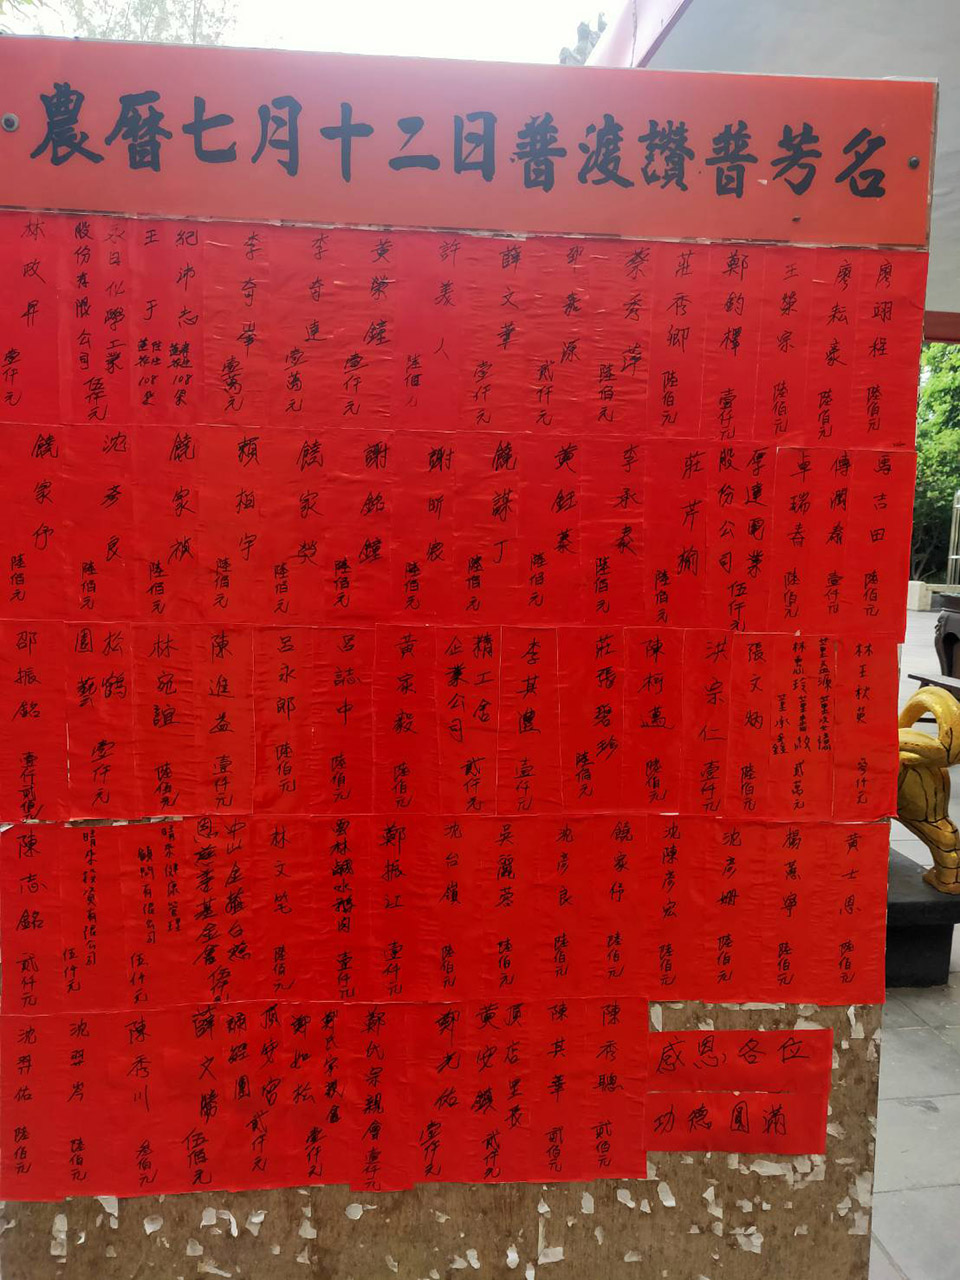 農曆七月十二日普渡讚普芳名
廖翊程 陸佰元
廖耘泰 陸佰元
王榮宗 陸佰元
鄭鈞 壹仟元
莊秀卿 陸佰元
蔡秀萍 陸佰元
邵嘉源 貳仟元
薛文華 壹仟元
許義人 陸佰元
黃榮鐘 壹仟元
李奇達 壹萬元
李奇峯 壹萬元
紀沛志 108
王于 108
永日化學工業
股份有限公司 伍仟元
林政昇 壹仟元
禹吉田 陸佰元
傅潤春 壹仟元
卓瑞春 陸佰元
厚達電業
股份公司 伍仟元
莊芹榆 陸佰元
李承豪 陸佰元
黃鈺蓁 陸佰元
饒謀丁 陸佰元
謝昕宸 陸佰元
謝銘鐘 陸佰元
饒家熒 陸佰元
賴柏宇 陸佰元
饒家禎 陸佰元
沈彥良 陸佰元
饒家伃 陸佰元
林王秋 仟元
林惠玲 貳萬元
張文炳 陸佰元
洪宗仁 壹仟元
陳柯邁 陸佰元
莊張碧珍 陸佰元
李其 壹仟元
精工舍
企業公司 貳仟元
黃聖毅 陸佰元
呂誌中 陸佰元
呂永郎 陸佰元
陳進益 壹仟元
林宛誼 陸佰元
松鶴
園藝 壹仟元
邵振銘 壹仟貳佰
黃士恩 陸佰元
楊蕙寧 陸佰元
沈彥姍 陸佰元
沈陳彥宏 陸佰元
饒家伃 陸佰元
沈彥良 陸佰元
吳麗蓉 陸佰元
沈台嶺 陸佰元
鄭振江 壹仟元
雲林鹹水鵝肉 壹仟元
林文笔 陸佰元
中山金蘭台慈
恩慈善基金會 伍仟
晴禾健康管理
顧問有限公司 伍仟元
晴禾投資有限公司 伍仟元
陳志銘 貳仟元
陳秀聰 貳佰元
陳其華 貳佰元
頂店里長
黃安鎮 貳仟元
鄭光佑 壹仟元
鄭氏宗親會 壹仟元
鄭氏宗親會
鄭如松 壹仟元
頂安宮
彌羅團 貳仟元
薛文騰 伍佰元
陳秀川 叁佰元
沈羿岑 陸佰元
沈羿佑 陸佰元
感恩各位
功德圓滿